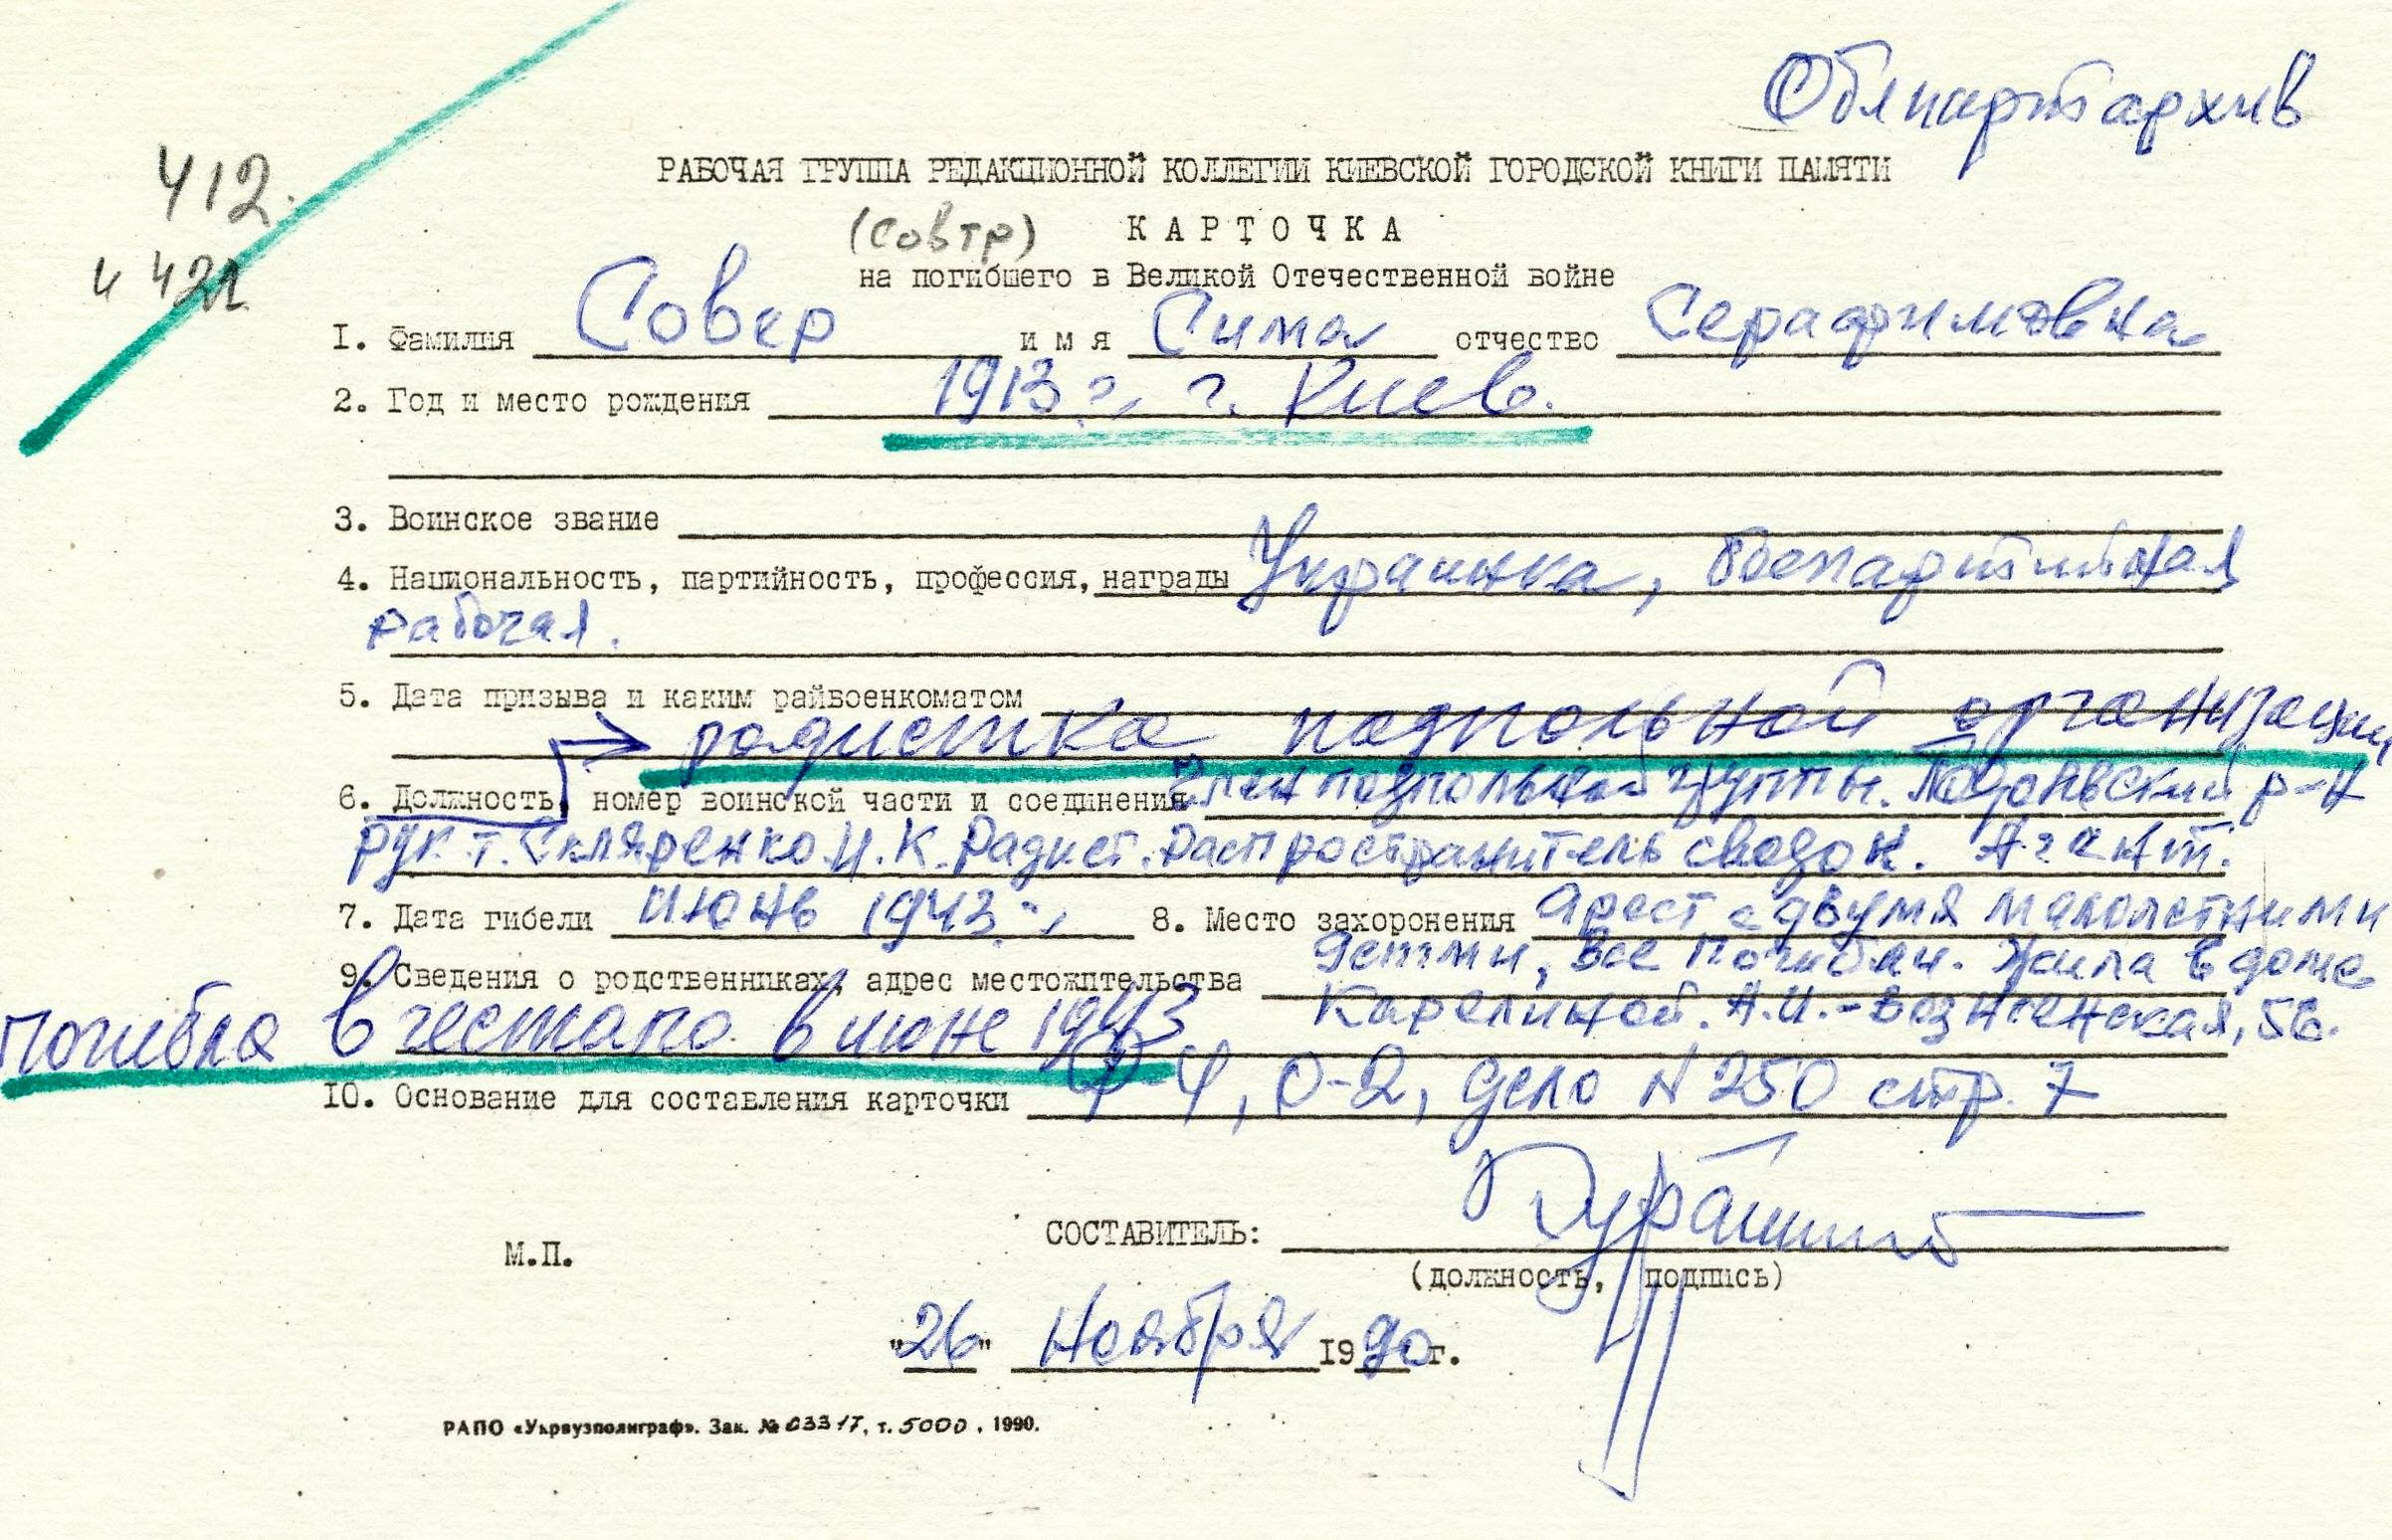 Облпартархив
412.
и 421
РАБОЧАЯ ГРУППА РЕДАКЦИОННОЙ КОЛЛЕГИИ КИЕВСКОЙ ГОРОДСКОЙ КНИГИ ПАМЯТИ
(Совтр) КАРТОЧКА
на погибшего в Великой Отечественной войне
I. Фамилия Совер имя Сима отчество Серафимовна
2. Год и место рождения 1913 г., г. Киев.
3. Воинское звание
4. Национальность, партийность, профессия, награды Украинка, беспартийная
рабочая.
5. Дата призыва и каким райвоенкоматом
радистка подпольной организации
6. Должность, номер воинской части и соединения член подпольной группы. р-н
рук. т. Скляренко И.К. Радист. Распространитель сводок. Агент.
7. Дата гибели июнь 1943 г. 8. Место захоронения Арест с двумя малолетними
детьми, все погибли. Жила в доме
9. Сведения о родственниках, адрес местожительства
Карелиной. А.И.-Вознесенская, 56.
погибла в гестапо в июне 1943
10. Основание для составления карточки Ф-4, О-2, дело N 250 стр. 7
СОСТАВИТЕЛЬ:
М.П.
(должность, подпись)
"26" Ноября 1990г.
РАПО «Укрвузполиграф». Зак. № 0331Т, т. 5000, 1990.